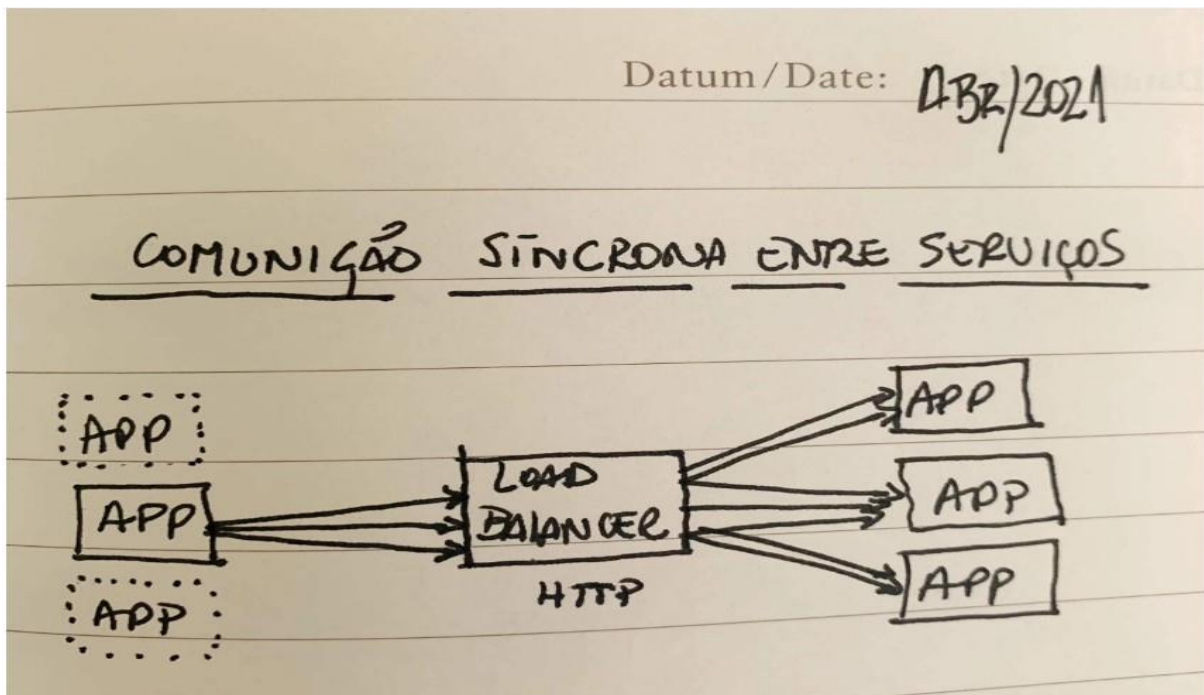 Datum/Date: ABR/2021
COMUNIÇÃO SÍNCRONA ENTRE SERVIÇOS
APP
APP
APP
LOAD
BALANCER
HTTP
APP
APP
APP